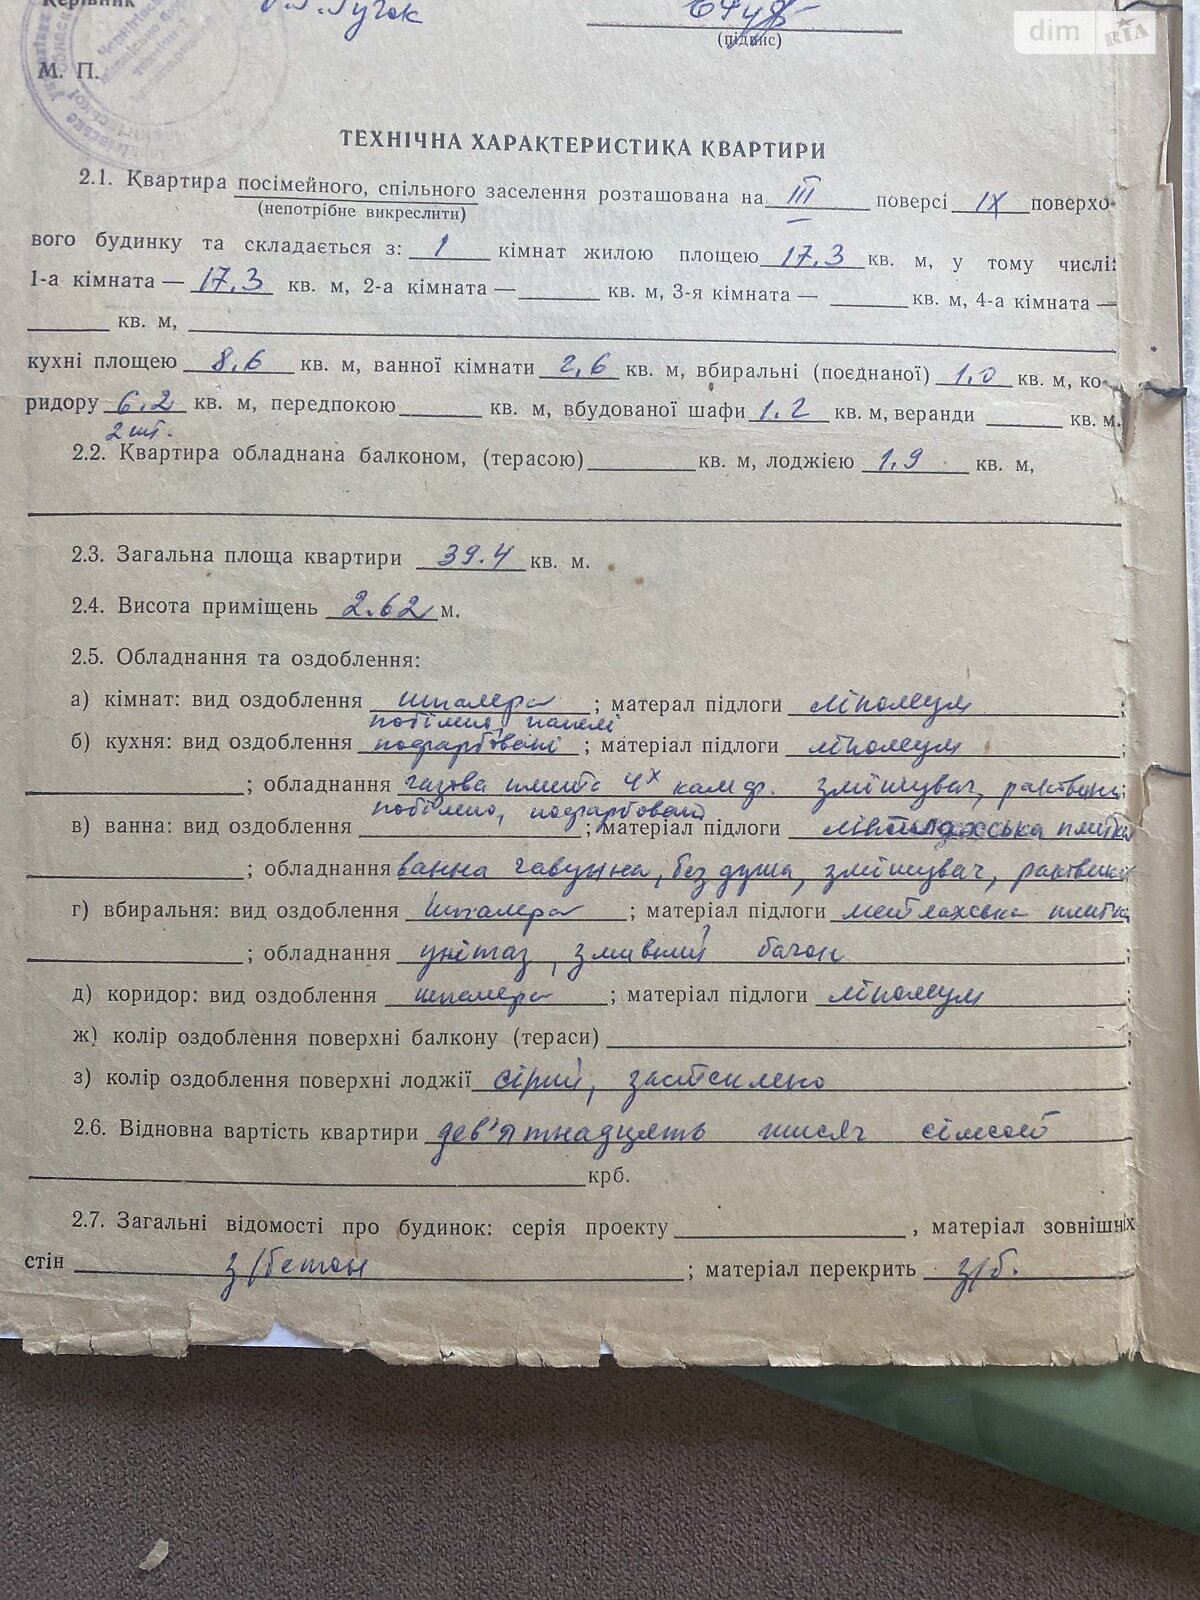 Керівник
(підпис)
dim RIA
М. П.
ТЕХНІЧНА ХАРАКТЕРИСТИКА КВАРТИРИ
2.1. Квартира посімейного, спільного заселення розташована на III поверсі IX поверхо-
(непотрібне викреслити)
вого будинку та складається з: 1 кімнат жилою площею 17.3 кв. м, у тому числі:
1-а кімната — 17.3 кв. м, 2-а кімната — кв. м, 3-я кімната — кв. м, 4-а кімната —
кв. м,
кухні площею 8.6 кв. м, ванної кімнати 2,6 кв. м, вбиральні (поєднаної) 1.0 кв. м, ко-
ридору 6.2 кв. м, передпокою кв. м, вбудованої шафи 1.2 кв. м, веранди кв. м.
2 шт.
2.2. Квартира обладнана балконом, (терасою) кв. м, лоджією 1.9 кв. м,
2.3. Загальна площа квартири 39.4 кв. м.
2.4. Висота приміщень 2.62 м.
2.5. Обладнання та оздоблення:
а) кімнат: вид оздоблення шпалера ; матерал підлоги лінолеум ;
побілено, панелі
б) кухня: вид оздоблення пофарбовані ; матеріал підлоги лінолеум ;
; обладнання газова плита 4х камф. змішувач, раковина;
побілено, пофарбовано
в) ванна: вид оздоблення ; матеріал підлоги плитка
; обладнання ванна чавунна, без душа, змішувач, раковина
г) вбиральня: вид оздоблення шпалера ; матеріал підлоги метлахська плитка
; обладнання унітаз, змивний бачок ;
д) коридор: вид оздоблення шпалера ; матеріал підлоги лінолеум ;
ж) колір оздоблення поверхні балкону (тераси) ;
з) колір оздоблення поверхні лоджії сірий, застклено
2.6. Відновна вартість квартири дев'ятнадцять тисяч сімсот
крб.
2.7. Загальні відомості про будинок: серія проекту , матеріал зовнішніх
стін з/бетон ; матеріал перекрить з/б.